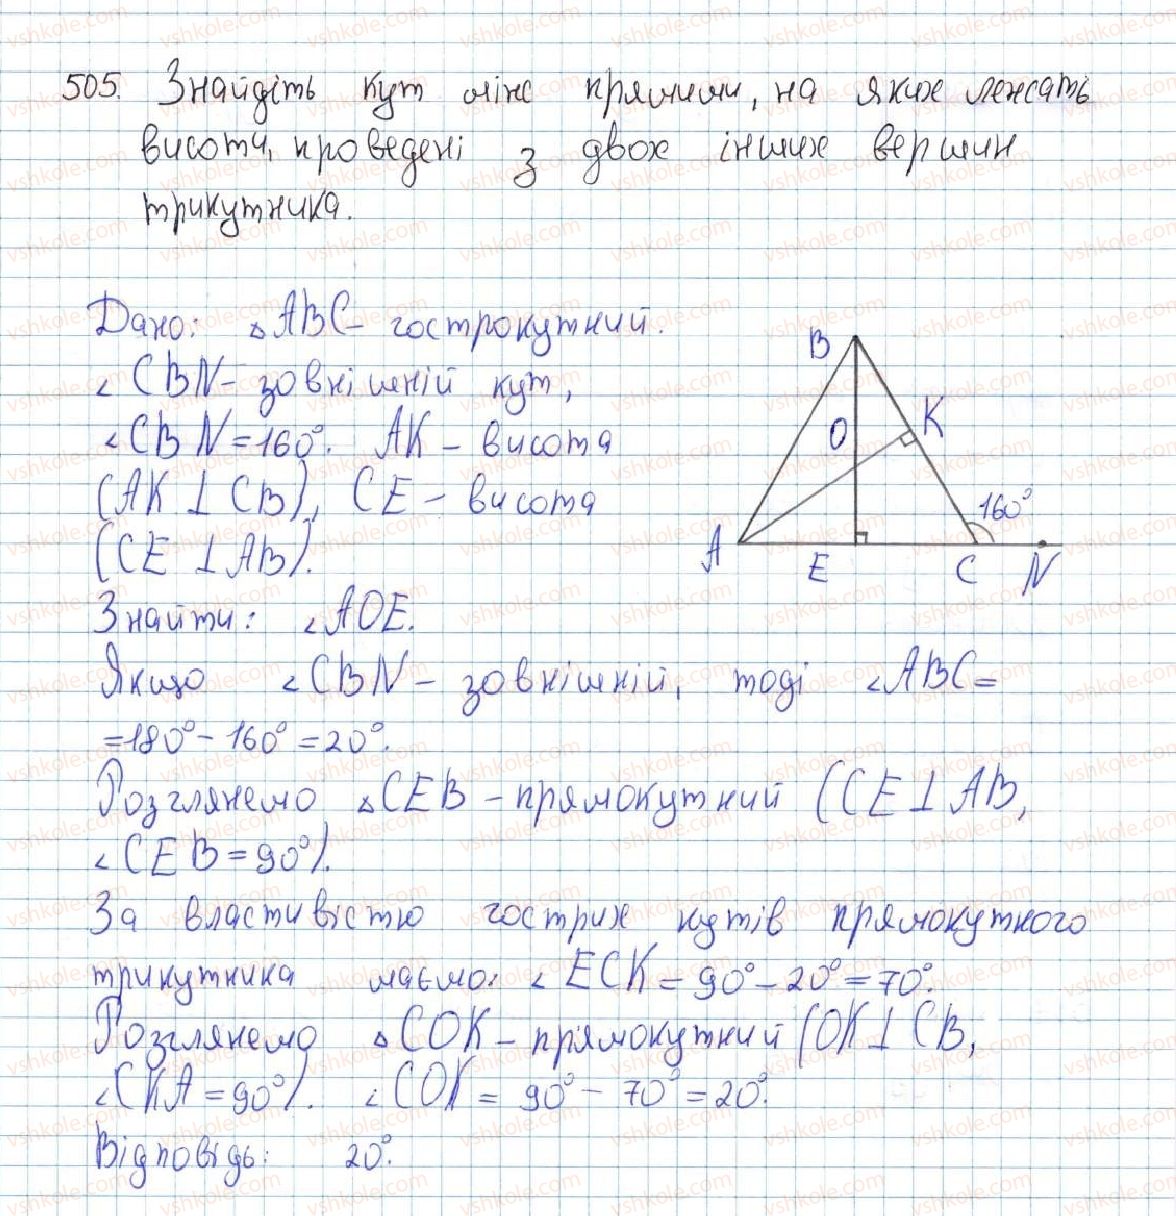 505. Знайдіть кут між прямими, на яких лежать
висоти, проведені з двох інших вершин
трикутника.
Дано: △ABC – гострокутний.
∠CBN – зовнішній кут,
∠CBN = 160°. AK – висота
(AK ⊥ CB), CE – висота
(CE ⊥ AB).
Знайти: ∠AOE.
Якщо ∠CBN – зовнішній, тоді ∠ABC =
= 180° – 160° = 20°.
Розглянемо △CEB – прямокутний (CE ⊥ AB,
∠CEB = 90°).
За властивістю гострих кутів прямокутного
трикутника маємо: ∠ECK = 90° – 20° = 70°.
Розглянемо △COK – прямокутний (OK ⊥ CB,
∠CKA = 90°). ∠COK = 90° – 70° = 20°.
Відповідь: 20°.
B
K
O
160°
A
E
C
N
vshkole.com